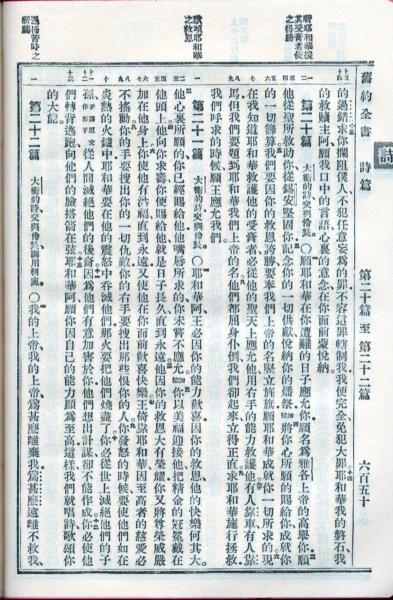 舊約全書 詩篇 第二十篇至第二十二篇 六百五十
詩
的過錯求你攔阻僕人不犯任意妄爲的罪不容這罪轄制我我便完全免犯大罪耶和華我的磐石我
的救贖主阿願我口中的言語心裏的意念在你面前蒙悅納
第二十篇 大衛的詩交與伶長〇願耶和華在你遭難的日子應允你願名爲雅各上帝的高舉你願
他從聖所救助你從錫安堅固你記念你的一切供獻悅納你的燔祭細拉將你心所願的賜給你成就你
的一切籌算我們要因你的救恩誇勝要奉我們上帝的名豎立旌旗願耶和華成就你一切所求的現
在我知道耶和華救護他的受膏者必從他的聖天上應允他用右手的能力救護他有人靠車有人靠
馬但我們要題到耶和華我們上帝的名他們都屈身仆倒我們卻起來立得正直求耶和華施行拯救
我們呼求的時候願王應允我們
第二十一篇 大衛的詩交與伶長〇耶和華阿王必因你的能力歡喜因你的救恩他的快樂何其大
他心裏所願的你已經賜給他他嘴脣所求的你未嘗不應允細拉你以美福迎接他把精金的冠冕戴在
他頭上他向你求壽你便賜給他就是日子長久直到永遠他因你的救恩大有榮耀你又將尊榮威嚴
加在他身上你使他有洪福直到永遠又使他在你面前歡喜快樂王倚靠耶和華因至高者的慈愛必
不搖動你的手要搜出你的一切仇敵你的右手要搜出那些恨你的人你發怒的時候要使他們如在
炎熱的火爐中耶和華要在他的震怒中吞滅他們那火要把他們燒盡了你必從世上滅絕他們的子
孫從人間滅絕他們的後裔因爲他們有意加害於你他們想出計謀卻不能作成你必使他
們轉背逃跑向他們的臉搭箭在弦耶和華阿願你因自己的能力顯爲至高這樣我們就唱詩歌頌你
的大能
第二十二篇 大衛的詩交與伶長調用朝鹿〇我的上帝我的上帝爲甚麼離棄我爲甚麼遠離不救我
讚頌耶和華
之救恩
遇極苦時之
祈禱